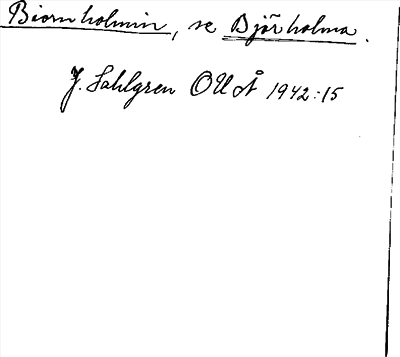 Biornholmin, se Björholma.
J. Sahlgren OUÅ 1942:15